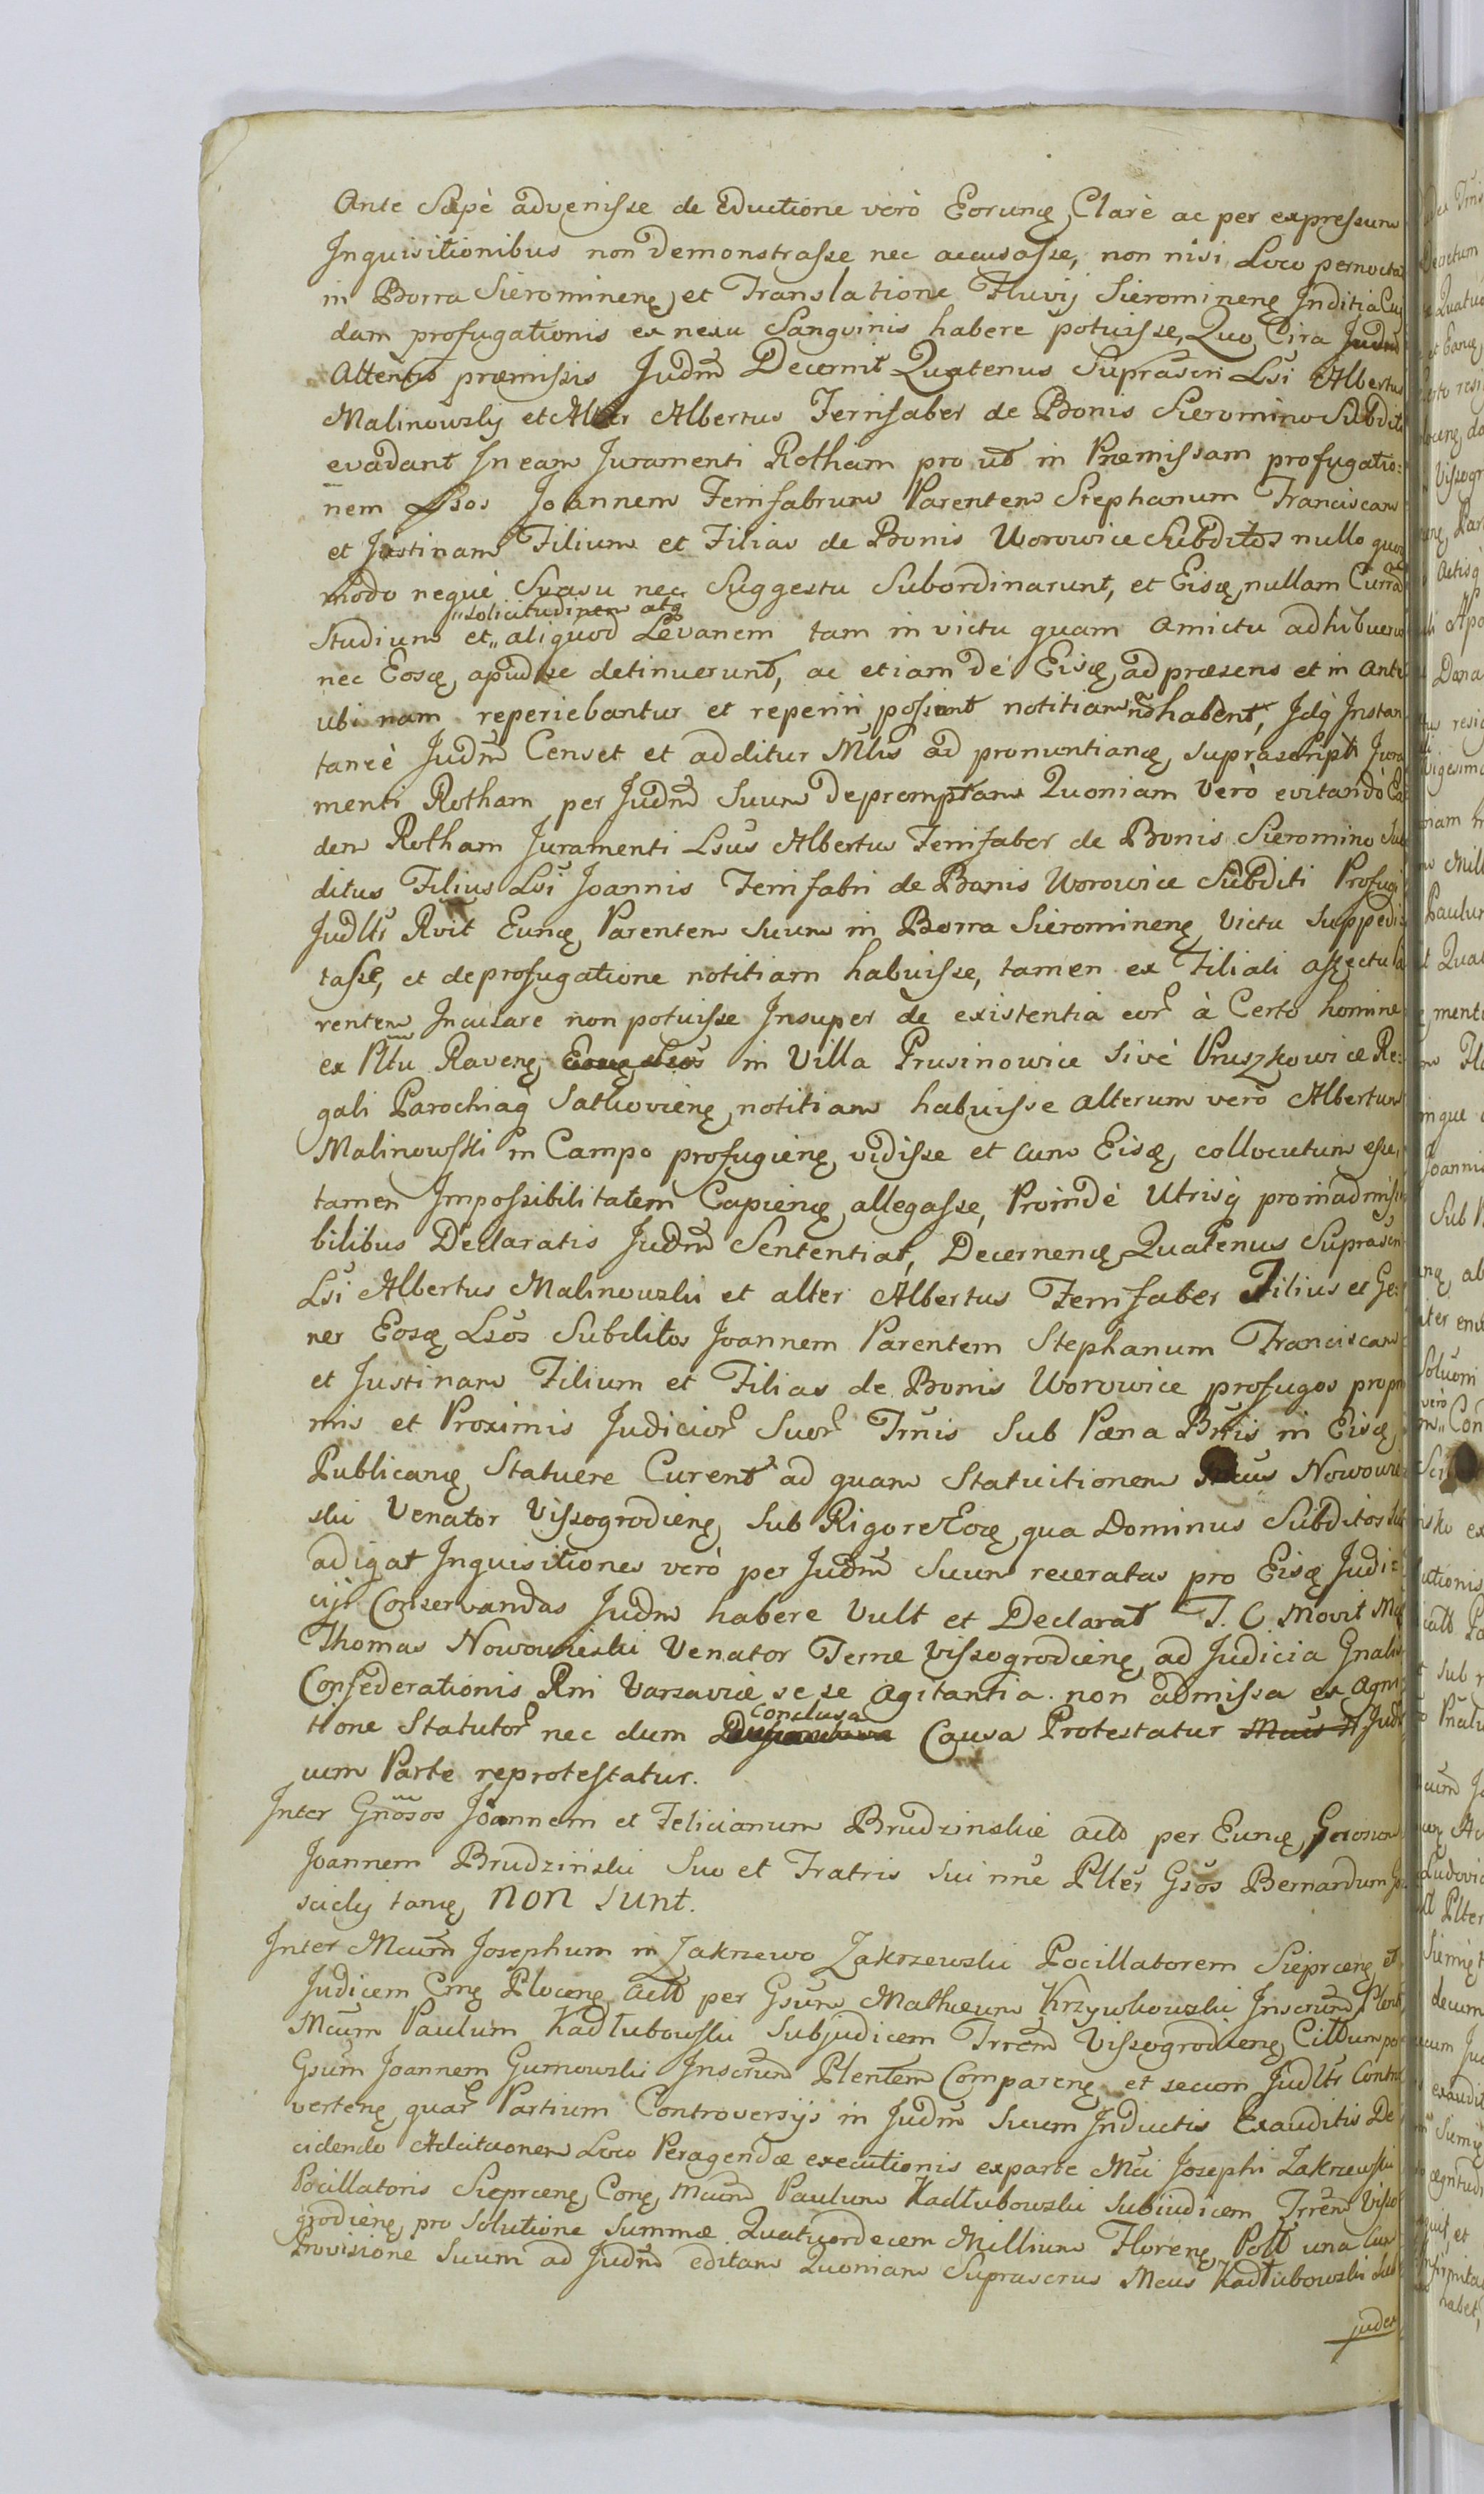 Ante Sæpè advenisse de Eductione verò Eorunq Clarè ac per expressum
Inquisitionibus non Demonstrasse nec accusasse, non nisi Loco pernocta
in Borra Sieromineng et Translatione Fluvij Sieromineng Inditia Cuj
dam profugationis ex nexu Sanguinis habere potuisse, Quo Circa Judm
Attentis præmissis Judm Decernit Quatenus Suprascri Lsi Albertus
Malinowsky et Alter Albertus Ferrifaber de Bonis Sieromino Subditi
evadant In eam Juramenti Rotham pro ut in Præmissam profugatio:
nem Lsos Joannem Ferrifabrum Parentem Stephanum Franciscam
et Justinam Filium et Filias de Bonis Worowice Subditos nullo quo
modo nequè Suasu nec Suggestu Subordinarunt, et Eisq nullam Curra
solicitudinem atq
Studium et „ aliquod Levamen tam in victu quam amictu adhibuerunt
nec Eosq apud se detinuerunt, ac etiam dè Eisq ad præsens et in Ante
ubi nam reperiebantur et reperiri possunt notitiam nõ habent, Idq Instan
taneè Judm Censet et additur Mlis ad pronuntianq suprascripti Jura
menti Rotham per Judm Suum depromptam Quoniam Verò evitando Ea
dem Rotham Juramenti Lsus Albertus Ferrifaber de Bonis Sieromino Sub
ditus Filius Lsi Joannis Ferrifabri de Bonis Worowice Subditi Profugi
Judltr Rvit Eunq Parentem Suum in Borra Sieromineng Victu Suppedi
tasse, et de profugatione notitiam habuisse, tamen ex Filiali affectu Pa
rentem Incusare non potuisse Insuper de existentia eor à Certo homine
ex Pltu Raveng in Villa Prusinowice sivè Pruszkowice Re:
gali Parochiaq Sathovieng notitiam habuisse alterum verò Albertum
Malinowski in Campo profugienq vidisse et cum Eisq collocutum esse,
tamen Impossibilitatem Capienq allegasse, Proindè Utrisq pro inadmissi
bilibus Declaratis Judm Sententiat, Decernenq Quatenus Suprascri
Lsi Albertus Malinowski et alter Albertus Ferrifaber Filius et Ge:
ner Eosq Lsos Subditos Joannem Parentem Stephanum Franciscam
et Justinam Filium et Filias de Bonis Worowice profugos propri
mis et Proximis Judicior Suor Trnis Sub Pæna Bnis in Eisq
Publicanq Statuere Curent ad quam Statuitionem Mcus Nowowie
ski Venator Vissogrodieng Sub Rigore Eoq qua Dominus Subditos
adigat Inquisitiones verò per Judm Suum receratas pro Eisq Judi:
cijs Conservandas Judm habere Vult et Declarat T. C. Movit Mcus
Thomas Nowowieski Venator Terræ Vissogrodieng ad Judicia Gnalis
Confederationis Rni Varsaviæ sese agitantia non admissa ex Agni
Conclusa
tione Statutor nec dum Causa Protestatur
uum Parte reprotestatur.
Inter Gnosos Joannem et Felicianum Brudzinskie actt per Eunq Gnosum
Joannem Brudzinski Suo et Fratris sui nne Plter Gsos Bernardum
scicky tanq non sunt.
Inter Mcum Josephum in Zakrzewo Zakrzewski Pocillatorem Sieprceng et
Judicem Cng Plocenq actt per Gsum Mathæum Krzywkowski Inscrum Plent
Mcum Paulum Kadłubowski Subjudicem Trrem Vissogrodieng Cittum per
Gsum Joannem Gumowski Inscrum Plentem Compareng et secum Judltr Contro
verteng quar Partium Controversijs in Judm Suum Inductis Exauditis De
cidendo Adcitaonem Loco Peragendæ executionis exparte Mci Josephi Zakrzewski
Pocillatoris Sieprceng Conq Mcum Paulum Kadłubowski Subiudicem Trrem Visso
grodieng pro Solutione Summæ Quatuordecem Millium Floreng Poll una cum
Provisione Suum ad Judm editam Quoniam Suprascrus Mcus Kadłubowski Sub
judex